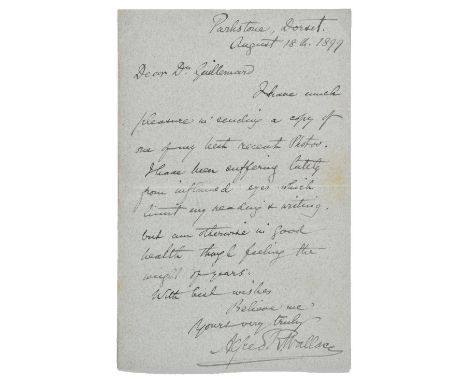 Parkstone, Dorset.
August 18th. 1899
Dear Dr. Guillemard
I have much
pleasure in sending a copy of
one of my best recent Photos.
I have been suffering lately
from inflamed eyes which
limit my reading & writing.
but am otherwise in good
health though feeling the
weight of years.
With best wishes
Believe me
Yours very truly
Alfred R. Wallace